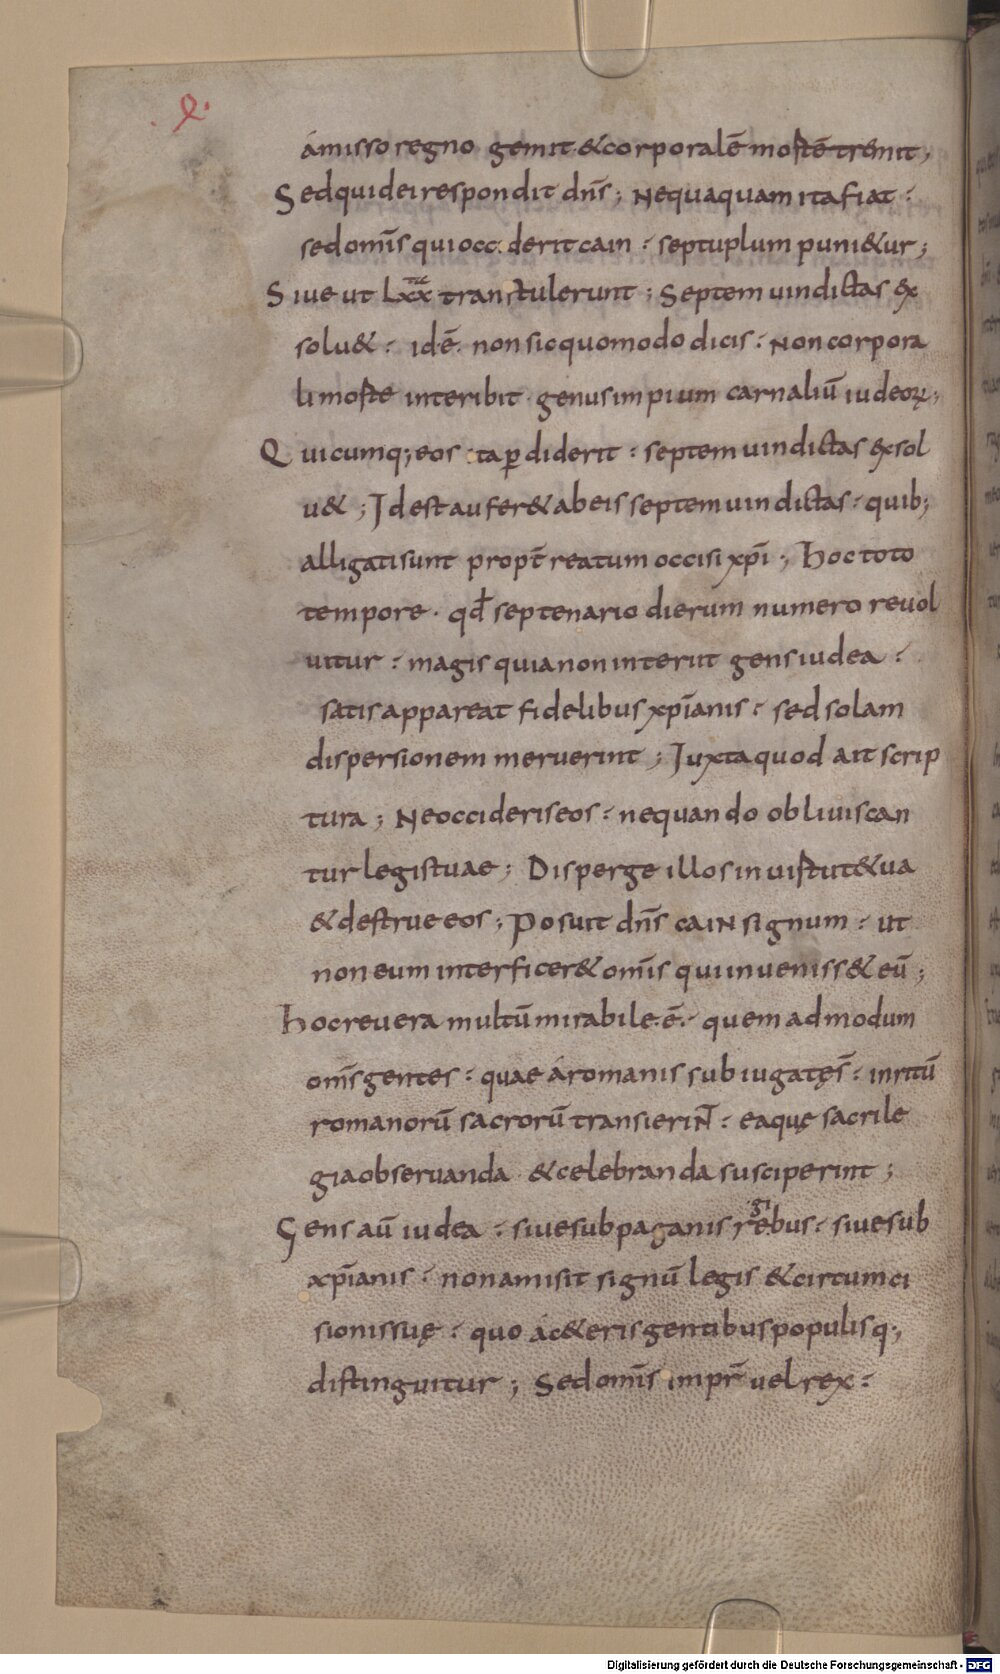 .ꝶ.
ámisso regno gemit & corporalē mortē tremit;
Sed quid ei respondit dn̄s; Nequaquam ita fiat:
sed omīs qui occiderit cain: septuplum puni&ur;
Siue ut Lxx transtulerunt; Septem uindictas ex
solu&: idē. non sic quomodo dicis: Non corpora
li morte interibit. genus impium carnaliū iudeoꝝ;
Quicumq; eos ita ꝑdiderit: septem uindictas exsol
u&; Id est aufer& ab eis septem uindictas: quib;
alligati sunt propt̄ reatum occisi xp̄i; Hoc toto
tempore. qđ septenario dierum numero reuol
uitur: magis quia non interiit gens iudea:
satis appareat fidelibus xp̄ianis: sed solam
dispersionem meruerint; Iuxta quod ait scrip
tura; Ne occideris eos: ne quando obliuiscan
tur legis tuae; Disperge illos in uirtut& ua
& destrue eos; Posuit dn̄s caiN signum: ut
non eum interficer& omīs qui inueniss& eū;
Hoc reuera multū mirabile.ē.: quemadmodum
omīs gentes: quae á romanis subiugatęs̄: in ritū
romanorū sacrorū transierin̄: eaquę sacrile
gia obseruanda. & celebranda susciperint;
Gens aū iudea: siue sub paganis regibus: siue sub
xp̄ianis: non amisit signū legis & circumci
sionis suę: quo á c&eris gentibus populisq;
distinguitur; Sed omīs impr̄ uel rex:
Digitalisierung gefördert durch die Deutsche Forschungsgemeinschaft - DFG